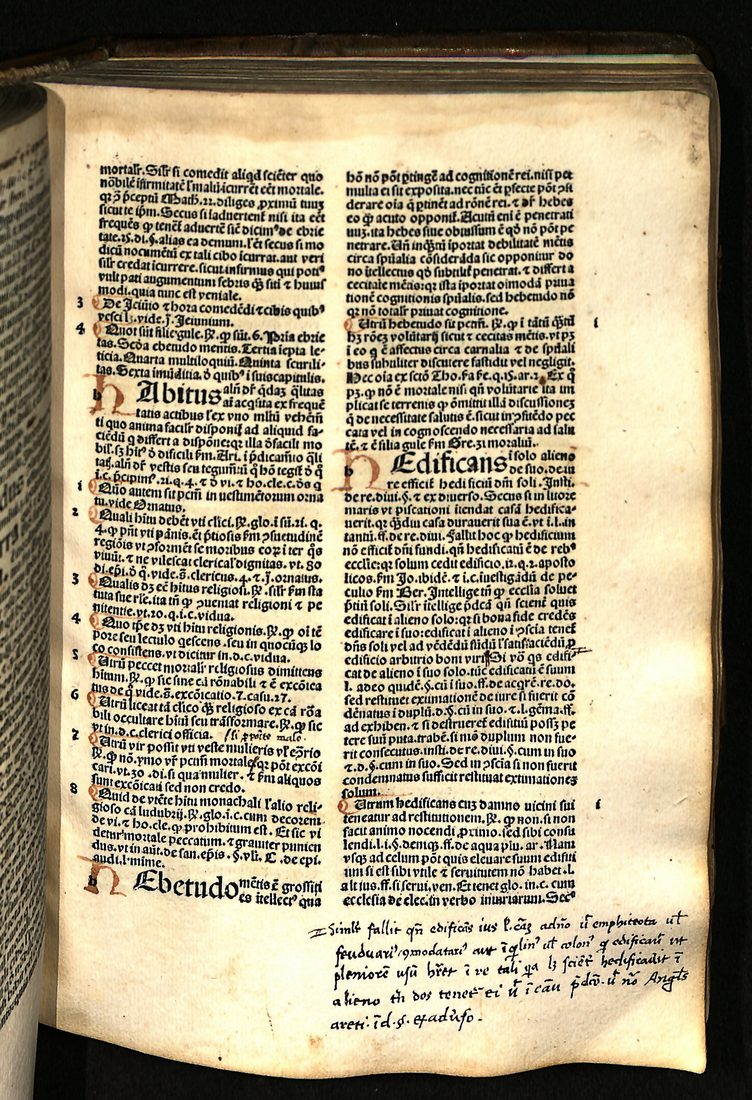 mortalr. Silr si comedit aliqd sciēter quo
nobilē ifirmitatē l malū icurrēt eēt mortale.
qr ꝯ p̄ceptū Math. 22. diliges ꝓximū tuuȝ
sicut te ip̄m. Secus si iaduertent̄ nisi ita eēt
frequēs ꝙ tenet̄ aduertē siē dicim⁹ de ebrie
tate. 15. di. §. alias ea demuni. l'ēt secus si mo
dicū nocumētū ex tali cibo icurrat. aut veri
silr credat icurrere. sicut infirmus qui poti⁹
vult pati augumentum febris ꝙ siti & huius
modi. quia tunc est veniale.
3 De ieiunio & hora comedēdi & cibis quib⁹
vesci lȝ. vide. j. Ieiunium.
4 Quot sūt filie gule. R. ꝙ sūt. 6. Pria ebrie
tas. Scda ebetudo mentis. Tertia iepta le-
ticia. Quarta multiloquiū. Quinta scurili-
tas. Sexta imūditia. d quib⁹ i suis capitulis.
h Abitus aln̄ dr̄ qdaȝ qlitas
aīi acqsita ex frequē
tatis actibus l'ex vno mltū vehemēti
ti quo anima facilr disponit̄ ad aliquid fa-
ciēdū
bil. sȝ hit⁹ d difficili fm. Ari. i p̄dicamēto qli
tati. aln̄ dr̄ vestis seu tegumētū
i. c. p̄cipim⁹. 21. q. 4. & d vi. & ho. cle. c. d̄s q̄
1 Quō autem sit pctm̄ in vestimētorum orna
tu. vide Ornatus.
2 Quali hitu debēt vti clici. R. glo. i sū. 21. q.
4. ꝙ pn̄t vti pānis. eī p̄tiosis fm ꝯsuetudinē
regiōis vt ꝯformēt se moribus eoꝝ īter q̄s
viuūt. & ne vilescat clerical' dignitas. vt. 80
di. epi. d̄ q̄. vide. s̄. clericus. 4. & j. ornatus.
3 Qualis dȝ eē hitus religiosi. R. silr fm sta
tuta sue rle. ita tn̄ ꝙ ꝯueniat religioni & pe
nitentie. vt. 20. q. i. c. vidua.
4 Quo tpe dȝ vti hitu religionis. R. ꝙ oī tē
pore seu lectulo qescens. seu in quocūqȝ lo
co consistens. vt dicitur in. d. c. vidua.
5 Utrū peccet mortalr religiosus dimittens
hitum. R. ꝙ sic sine cā rōnabili & ē excōica
tus de q̄ vide. s̄. excōicatio. 7. casu. 27.
6 Utrū liceat tā clico qȝ religioso ex cā rōa
bili occulare hitū seu trāsformare. R. ꝙ sic
vt in. d. c. clerici officia.
7 Utrū vir possit vti veste mulieris vl' ecōrio
R. ꝙ nō. ymo vr̄ pctm̄ mortale qr pōt excōi
cari. vt. 30. di. si qua mulier. & fm aliquos
sunt excōicati sed non credo.
8 Quid de vtēte hitu monachali l'alio reli-
gioso cā ludubrij. R. glo. i. c. cum decorem
de vi. & ho. cle. ꝙ prohibitum est. Et sic vi
detur mortale peccatum. & grauiter punien
dus. vt in aut̄. de san. epīs. §. vlti. C. de epi.
audi. l. mime.
h Ebetudo mētis ē grossiti
es itellect⁹ qua
hō nō pōt ptingē ad cognitionē rei. nisi pet
multa ei sit exposita. nec tūc eī pfecte pōt ꝯsi
derare oīa q̄ ptinēt ad rōnē rei. & dr̄ hebes
eo ꝙ acuto opponit̄. Acutū enī ē penetrati
uuȝ. ita hebes siue obtusum ē qd̄ nō pōt pe
netrare. Un̄ inqtū iportat debilitatē mētis
circa spūalia cōsiderāda sic opponitur do
no itellectus qd̄ subtilit̄ penetrat. & differt a
cecitate mētis: qr ista iportat oīmodā priua
tionē cognitionis spūalis. sed hebetudo nō
qr nō totalr priuat cognitionem.
Utrū hebetudo sit pctm̄. R. ꝙ i tātū q̄tū 1
hȝ rōeȝ volūtarij sicut & cecitas mētis. vt pȝ
i eo q ē affectus circa carnalia & de spūali
bus subtiliter discutere fastidit vel negligit.
Hec oīa ex scto Tho. scda scde. q. 15. ar. 2. Ex q̄
pȝ. ꝙ nō ē mortale nisi qn̄ volūtarie ita im
plicat se terrenis ꝙ omittit illa discutere
q̄ de necessitate salutis ē. sicut in ꝯfitēdo pec
cata vel in cognoscendo necessaria ad salu
tē. & ē filia gule fm Gre. 31. moraliū.
h Edificans i solo alieno
de suo. de iu
re efficit̄ hedificiū dn̄i soli. Insti.
de re. diui. §. & ex diuerso. Secus si in litore
maris vt piscationi itendat casā hedifica-
uerit. qr q̄diu casa durauerit sua ē. vt i. l. in
tantū. ff. de re. diui. Fallit hoc ꝙ hedificium
nō efficit̄ dn̄i fundi. qn̄ hedificatū ē de reb⁹
ecclie: qr solum cedit edificio. 12. q. 2. aposto
licos. fm Jo. ibidē. & i. c. iuestigādū de pe-
culio fm Ber. Intellige tn̄ ꝙ ecclia soluet
p̄tiū soli. Silr itellige p̄dcā qn̄ sciens quis
edificat i alieno solo: qr si bona fide credēs
edificare i suo: edificat i alieno i ꝯscia tenet̄
dn̄s soli vel ad vēdēdū
edificio arbitrio boni viri. Si vo qs edifi-
cat de alieno i suo solo. tūc edificatū ē suum
l. adeo quidē. §. cū i suo. ff. de acqre. re. do.
sed restituet extimationē de iure si fuerit cō
dēnatus i duplū. d. §. cū in suo. & l. gēma. ff.
ad exhiben. & si destrueret̄ edifitiū posȝ pe
tere suū puta. trabē. si mō duplum non fue-
rit consecutus. insti. de re. diui. §. cum in suo
& d. §. cum in suo. Sed in ꝯscia si non fuerit
condemnatus sufficit restituat extimationeȝ
solum.
Utrum hedificans cuȝ damno vicini sui 1
teneatur ad restitutionem. R. ꝙ non. si non
facit animo nocendi ꝓximo. sed sibi consu
lendi. l. i. §. deniqȝ. ff. de aqua plu. ar. Nam
vsqȝ ad celum pōt quis eleuare suum edifiti
um si est sibi vtile & seruitutem nō habet. l.
altius. ff. si serui. ven. Et tenet glo. in. c. cum
ecclesia de elec. in verbo iniuriarum. Sec⁹
Simlr fallit qn̄ edificās
feuduari⁹ ꝯmodatari⁹ aut
pleniorē usū hr̄et i re tali
alieno tn̄ dos tenet̄ ei
areti. i. d. §. ex aduerso.